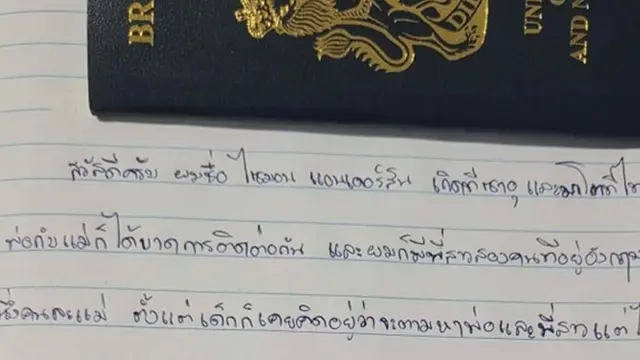 BR
UN
AND N
DI
สวัสดีครับ ผมชื่อ ไซมอน แอนเดอร์สัน เกิดที่ และมาโตที่ไท
พ่อกับแม่ก็ได้ขาดการติดต่อกัน และผมก็มีพี่สาวสองคนที่อยู่อังกฤษ
ซึ่งคนละแม่ ตั้งแต่เด็กก็เคยคิดอยู่ว่าจะตามหาพ่อและพี่สาว แต่ไ